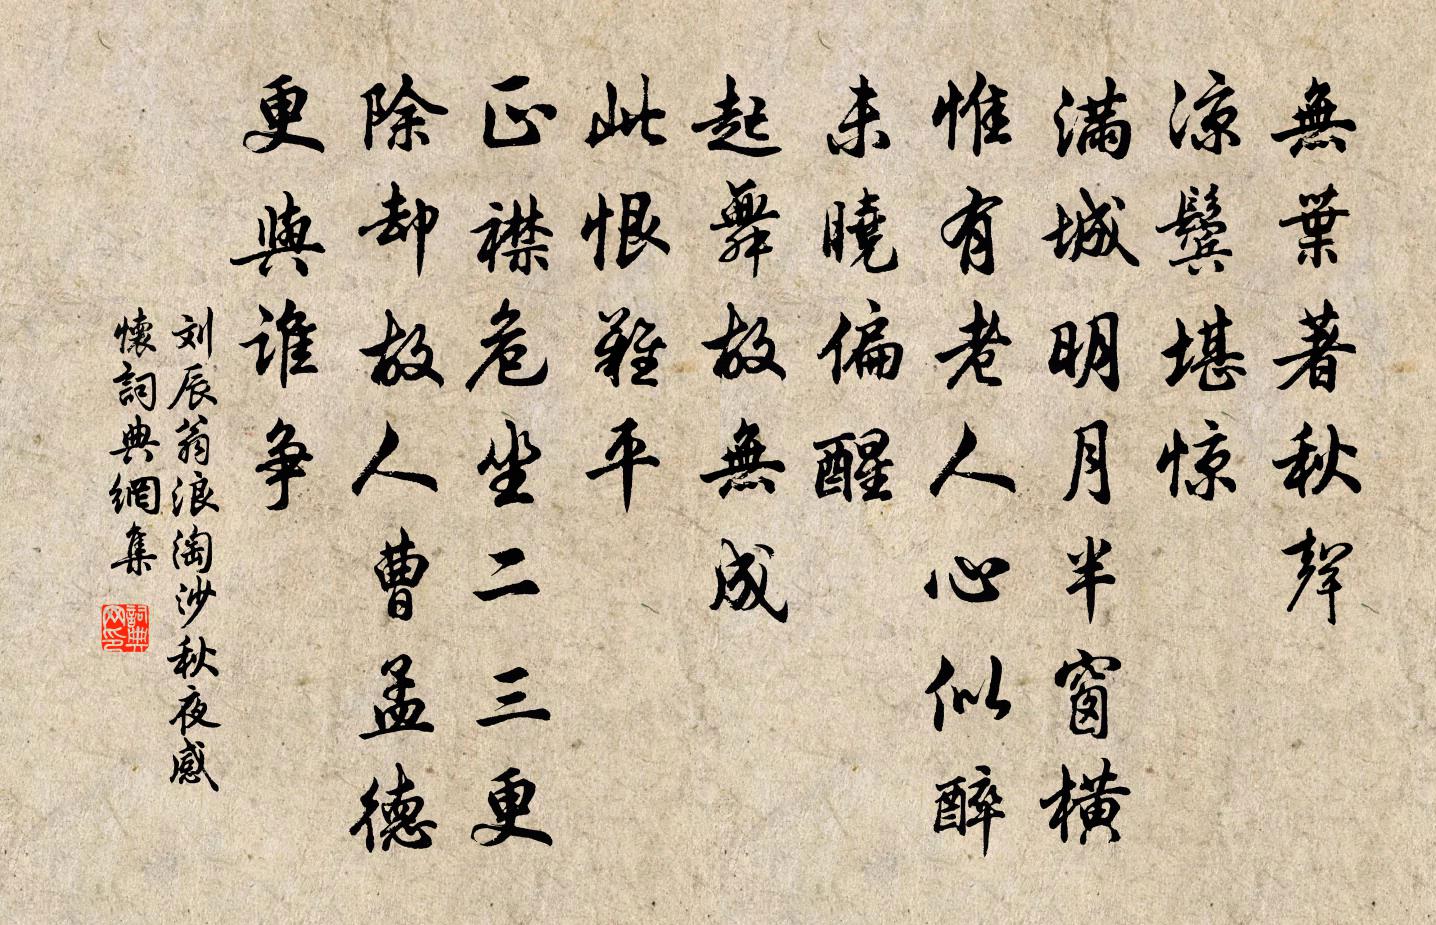 無葉著秋聲
涼鬢堪惊
滿城明月半窗橫
惟有老人心似醉
未曉偏醒
起舞故無成
此恨難平
正襟危坐二三更
除却故人曹孟德
更與誰争
刘辰翁浪淘沙秋夜感
懷詞典網集
詞典網印